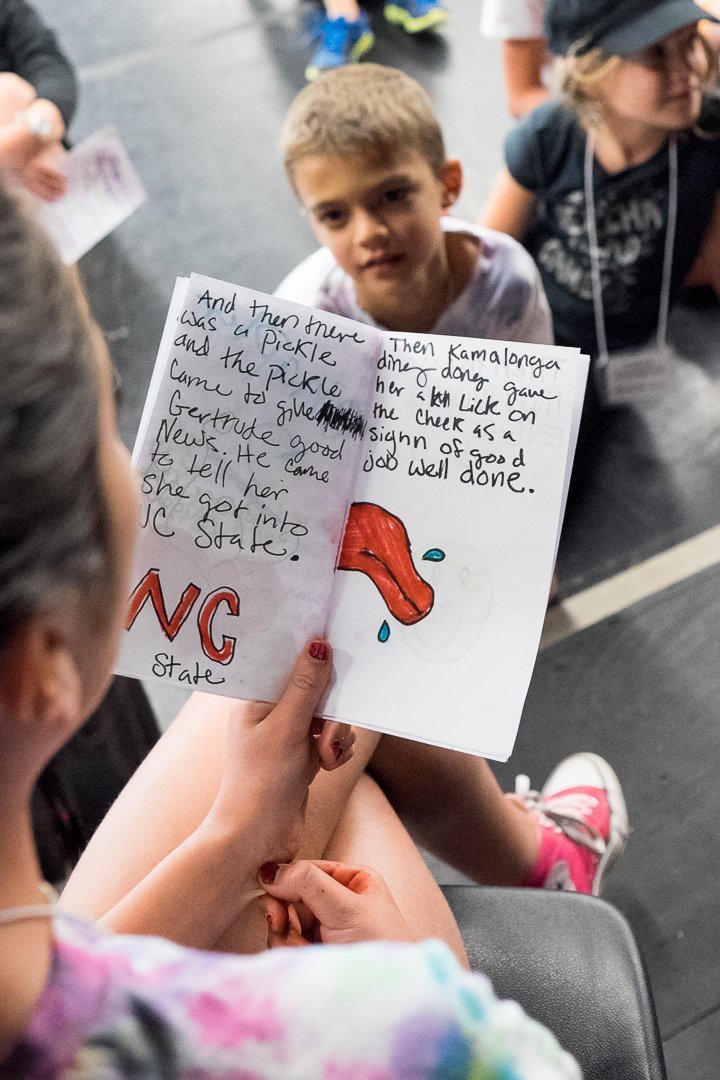 And then there
was a Pickle
and the Pickle
came to give
Gertrude good
News. He came
to tell her
she got into
NC State.
NC
State
Then Kamalonga
ding dong gave
her a Lick on
the cheek as a
signn of good
job well done.